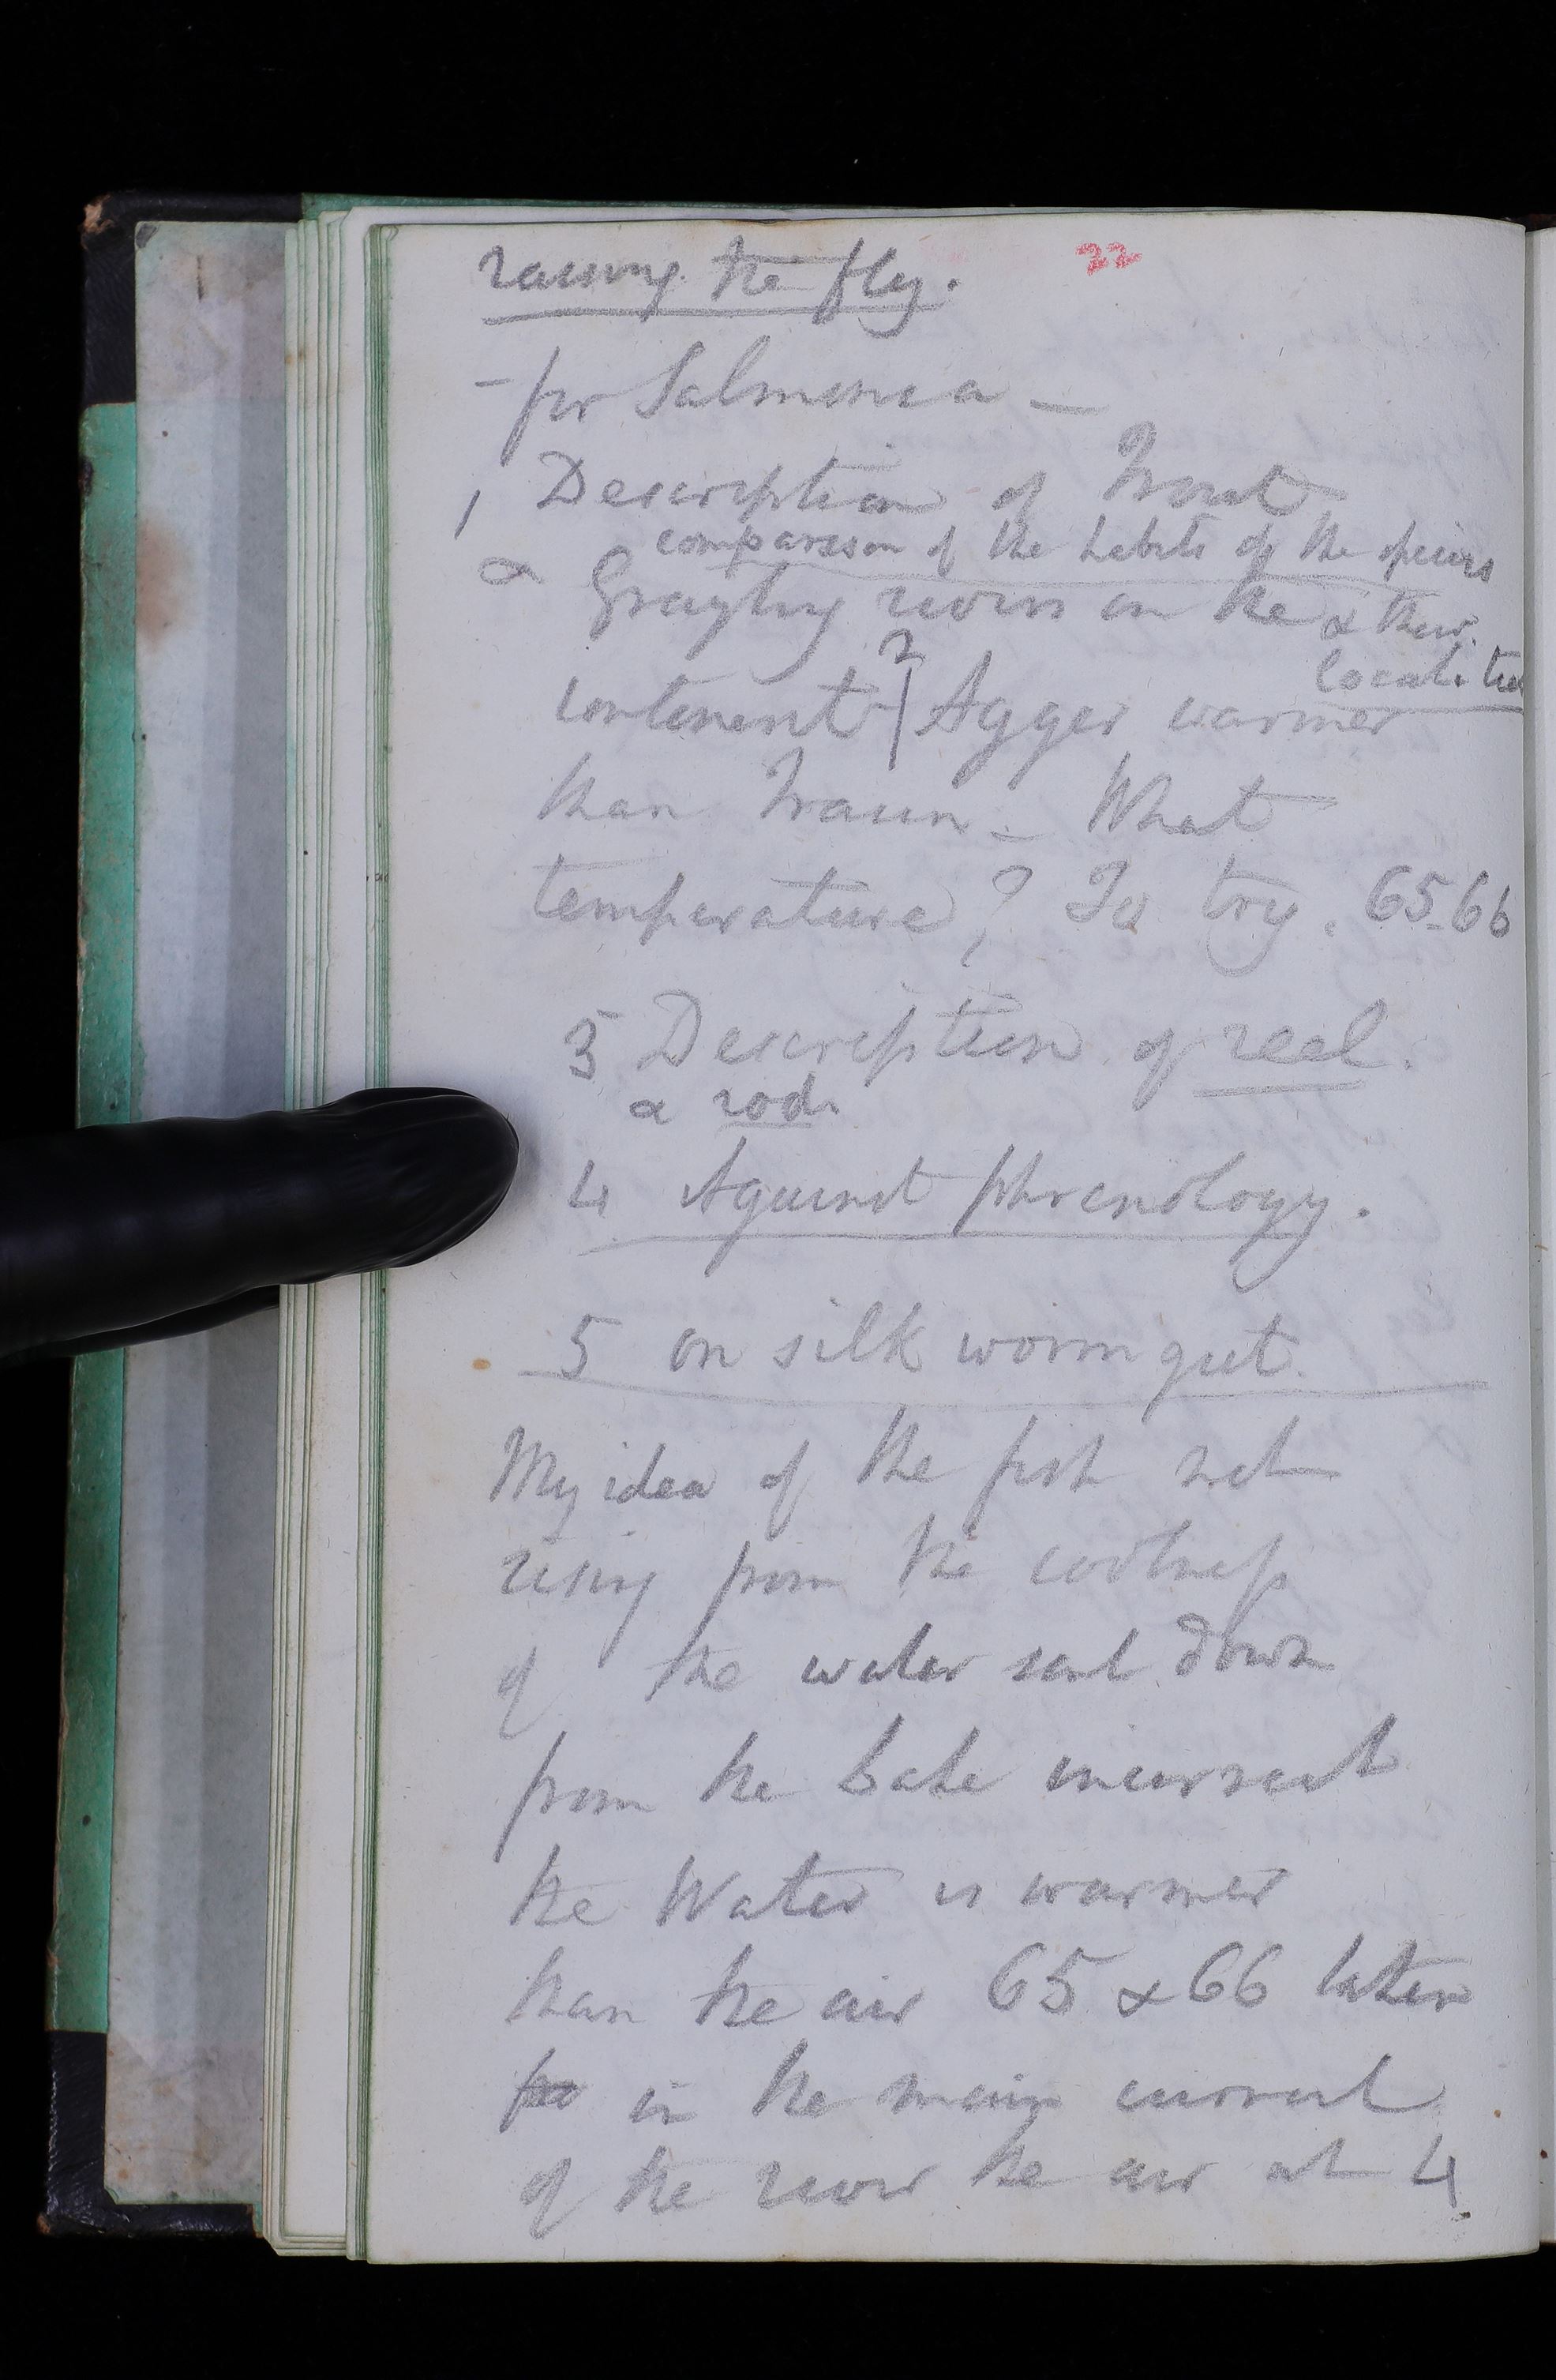 raising the fly. 22
- for Salmonia -
1 Description of Trout
comparison of the habits of the species
& Grayling rivers on the & their
localities
continent 2 Agger warmer
than Traun - What
temperature? To try. 65-66
3 Description of reel.
& rod.
4 Against phrenology.
5 on silk worm gut.
My idea of the fish not
rising from the coolness
of the water sent down
from the lake incorrect
the Water is warmer
than the air 65 & 66
in the main current
of the river the air at 4